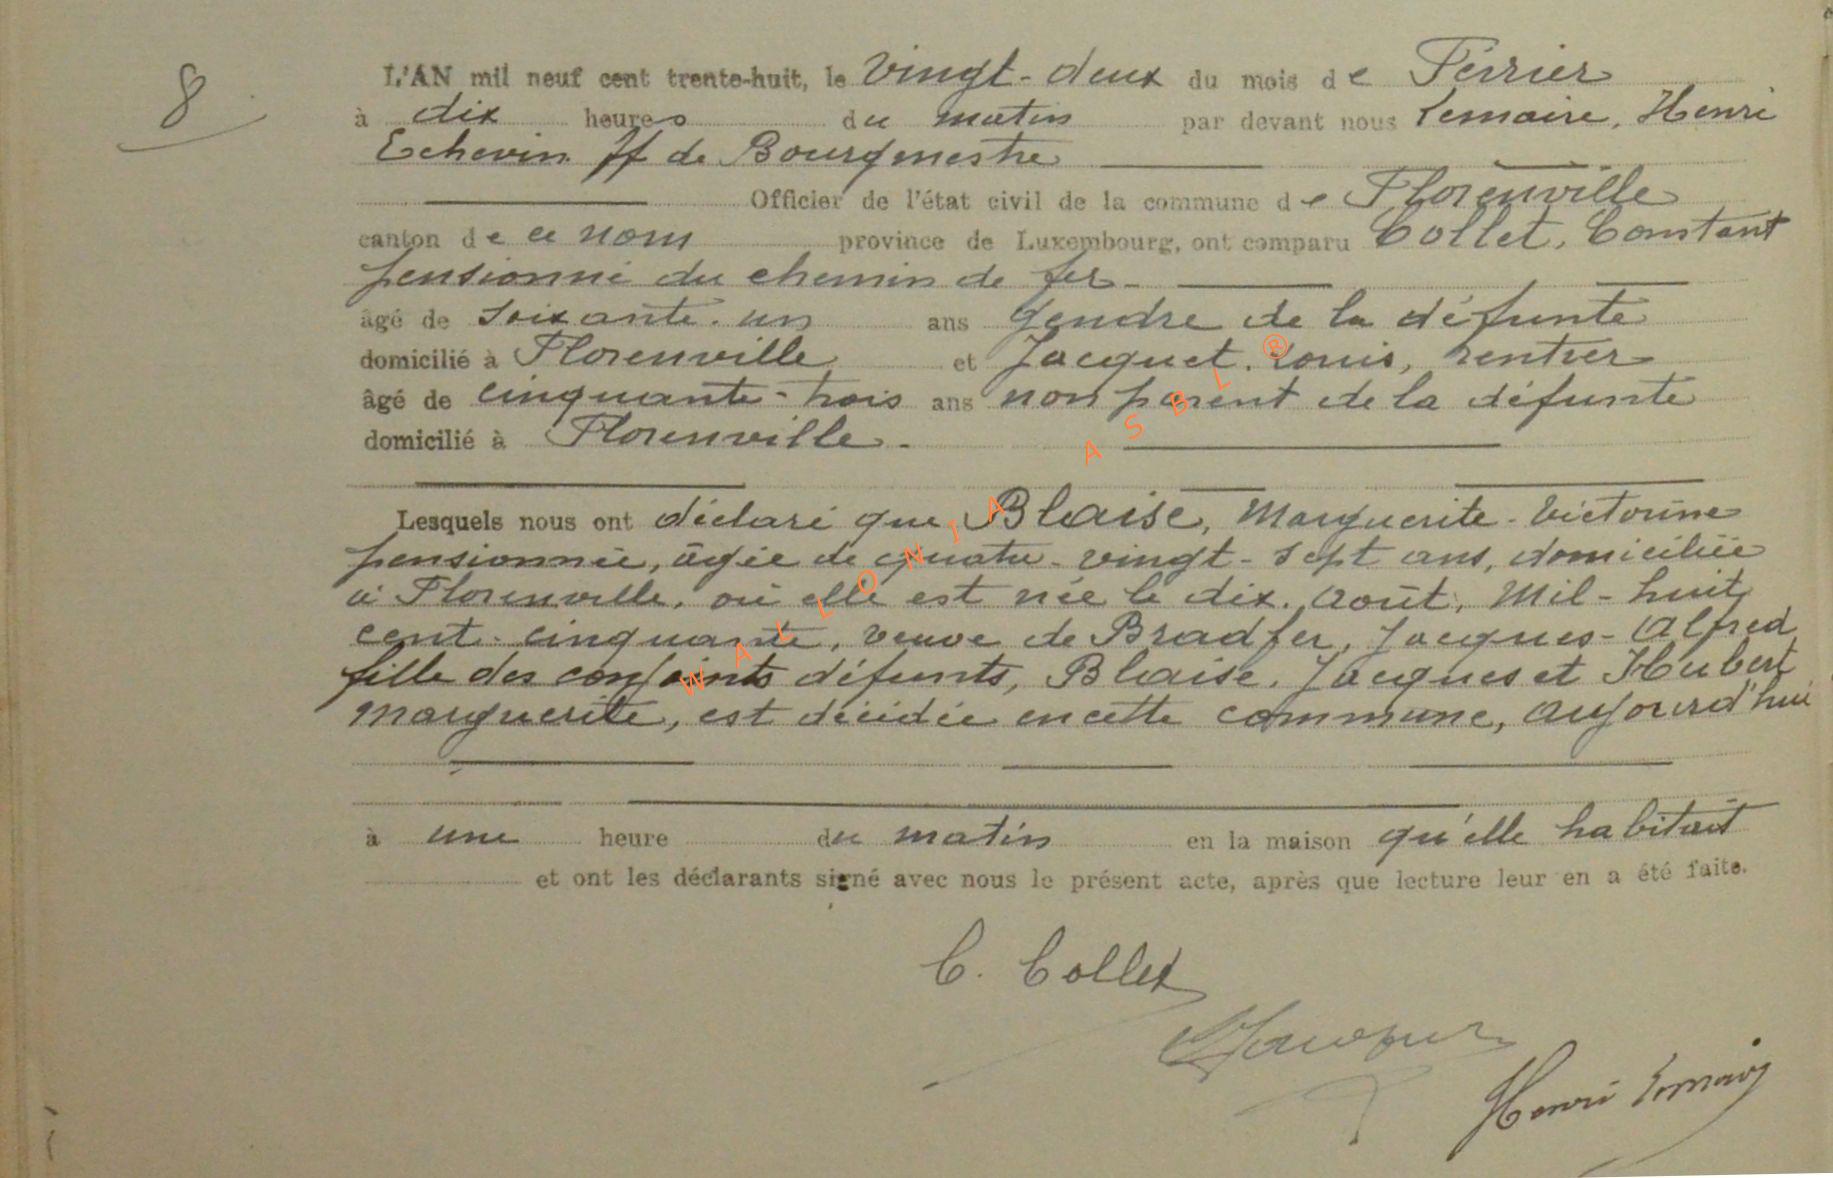 8
L'AN mil neuf cent trente-huit, le vingt-deux du mois de Février
à dix heures du matin par devant nous Lemaire, Henri
Echevin ff de Bourgmestre
Officier de l'état civil de la commune de Florenville
canton de ce nom province de Luxembourg, ont comparu Collet, Constant
pensionné du chemin de fer -
âgé de soixante-un ans gendre de la défunte
domicilié à Florenville et Jacquet, Louis, rentier
âgé de cinquante-trois ans non parent de la défunte
domicilié à Florenville -
Lesquels nous ont déclaré que Blaise, Marguerite-Victorine
pensionnée, âgée de quatre-vingt-sept ans, domiciliée
à Florenville, où elle est née le dix août, mil-huit
cent-cinquante, veuve de Bradfer, Jacques-Alfred,
fille des conjoints défunts, Blaise, Jacques et Hubert
Marguerite, est décédée en cette commune, aujourd'hui
à une heure du matin en la maison qu'elle habitait
et ont les déclarants signé avec nous le présent acte, après que lecture leur en a été faite.
C. Collet
L Jacquet
Henri Lemaire
WALLONIA ASBL ®